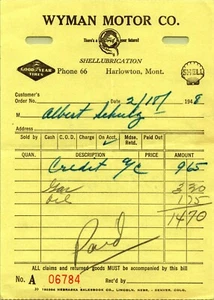 WYMAN MOTOR CO.
There's a
of your future!
SHELLUBRICATION
GOOD YEAR
TIRES
Phone 66 Harlowton, Mont.
SHELL
Customer's
Order No. Date 2/18/ 1948
M Albert Schulz
Address
Sold by Cash C.O.D. Charge On Acct. Mdse. Retd. Paid Out
QUAN. DESCRIPTION PRICE AMOUNT
Credit a/c 965
Gas 330
Oil 175
1470
Paid
ALL claims and returned goods MUST be accompanied by this bill
No. A 06784
NEBRASKA SALESBOOK CO., LINCOLN, NEBR. - DENVER, COLO.